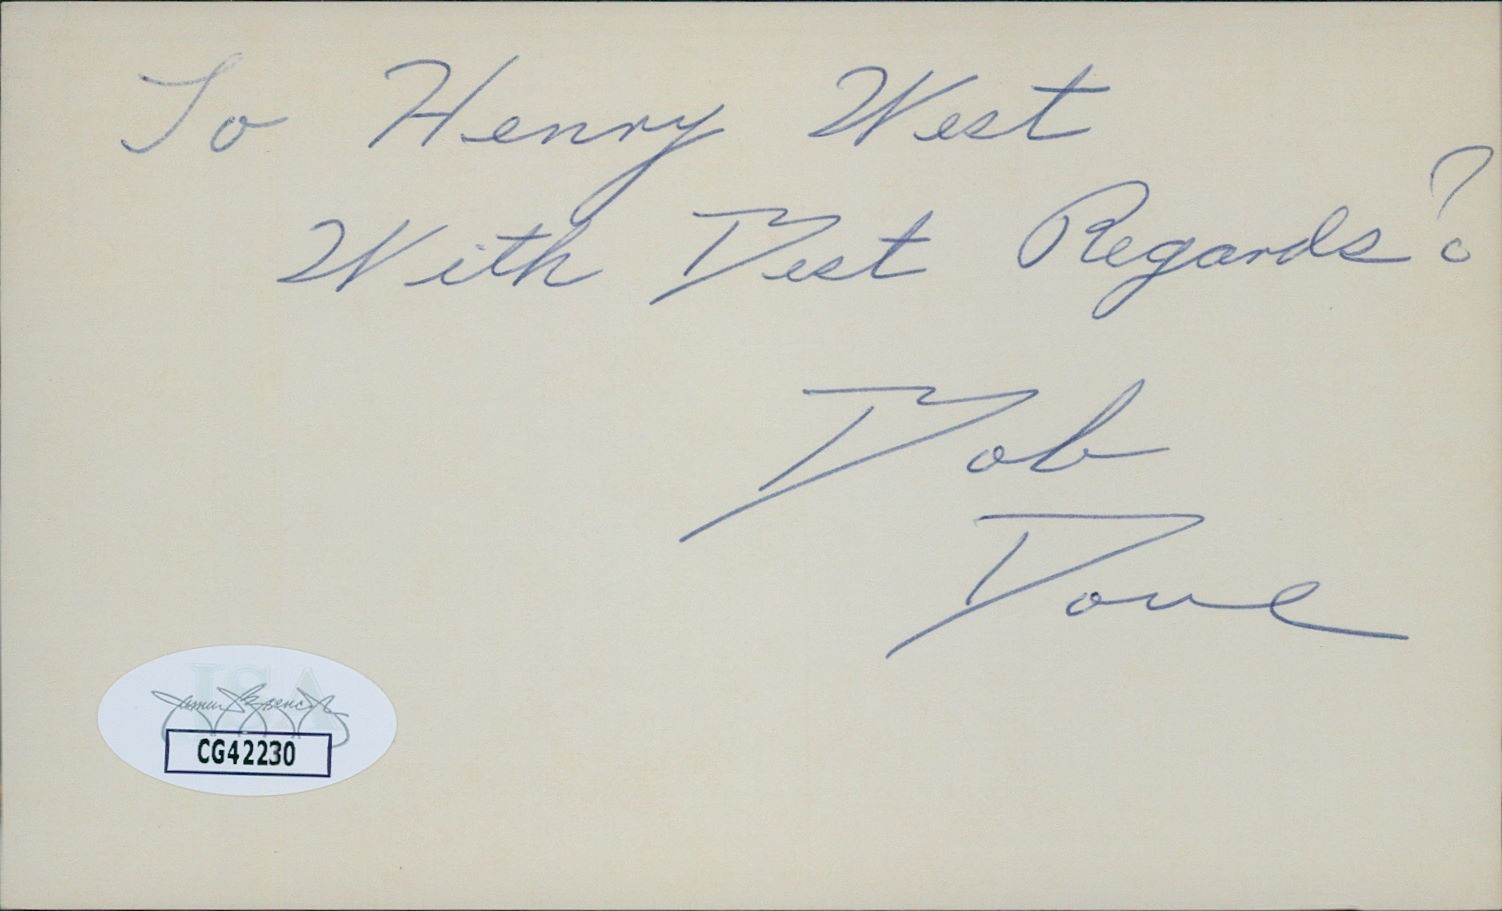 To Henry West
With Best Regards?
Bob
Dove
JSA
CG42230